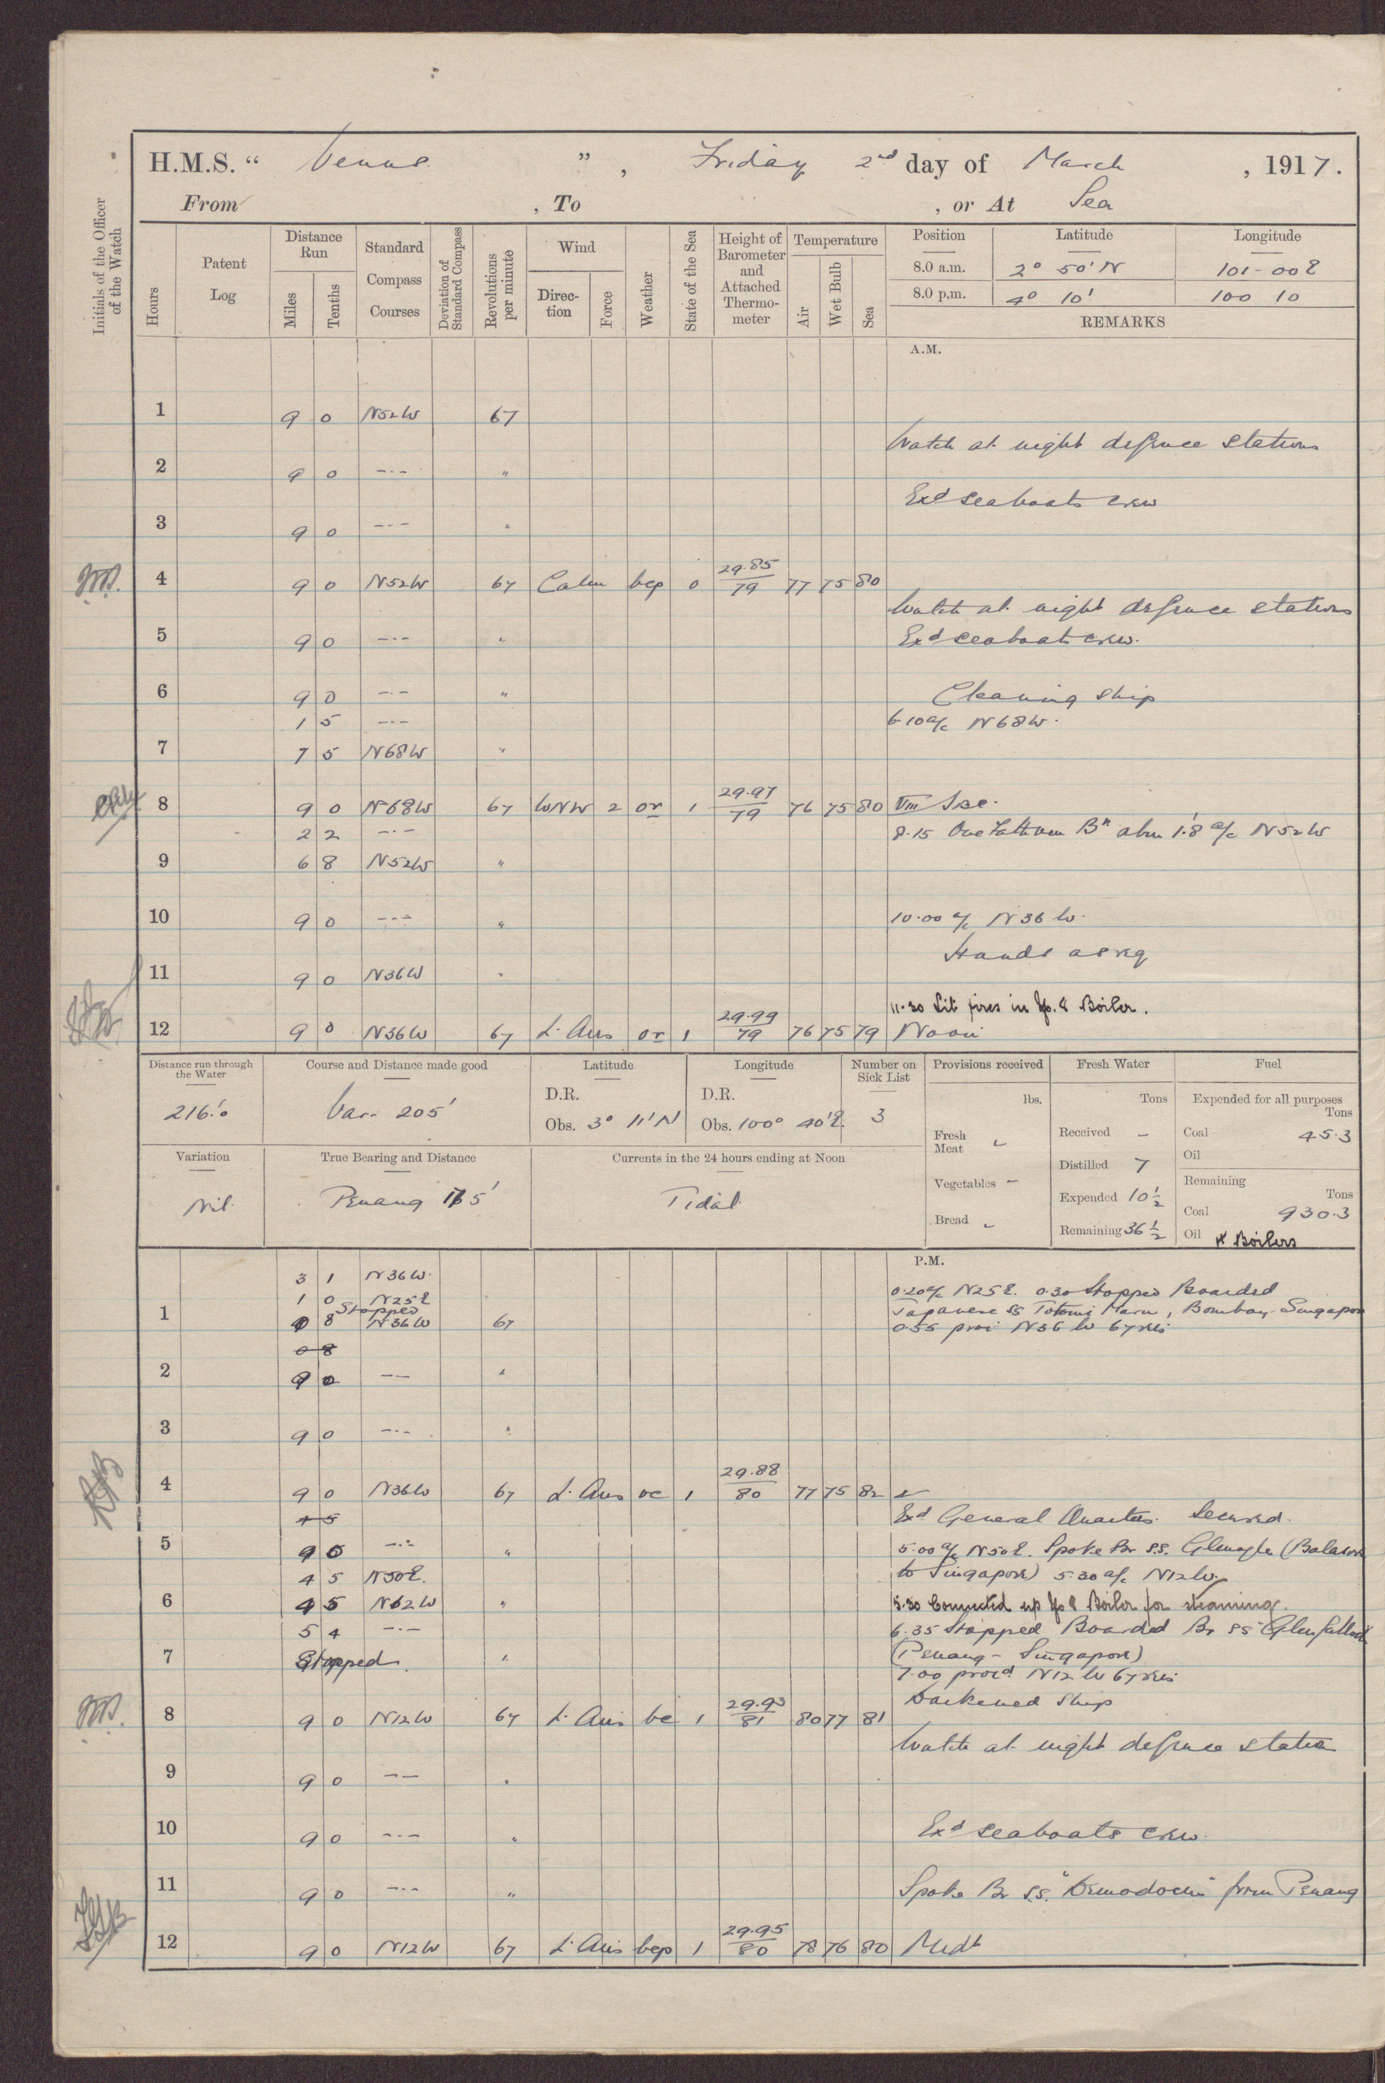 H.M.S. " Venus ", Friday 2nd day of March, 1917.
From , To , or At Sea
Initials of the Officer of the Watch
Hours
Patent Log
Distance Run
Miles
Tenths
Standard Compass Courses
Deviation of Standard Compass
Revolutions per minute
Wind
Direction
Force
Weather
State of the Sea
Height of Barometer and Attached Thermometer
Temperature
Air
Wet Bulb
Sea
Position Latitude Longitude
8.0 a.m. 2° 50' N 101-00 E
8.0 p.m. 4° 10' 100 10
REMARKS
A.M.
1 9 0 N52W 67
Watch at night defence stations
2 9 0 —·— "
Exd seaboats crew
3 9 0 —·— "
4 9 0 N52W 67 Calm bcp 0 29.85/79 77 75 80
Watch at night defence stations
5 9 0 —·— " Exd seaboats crew.
6 9 0 —·— " Cleaning ship
1 5 —·— 6.10 a/c N68W.
7 7 5 N68W "
8 9 0 N68W 67 WNW 2 or 1 29.97/79 76 75 80 VIII
2 2 —·— 8.15 One Fathom Bk abm 1'.8 a/c N52W
9 6 8 N52W "
10 9 0 —·— " 10.00 a/c N36W.
Hands as req
11 9 0 N36W "
11.30 Lit fires in No. 8 Boiler.
12 9 0 N36W 67 L. Airs or 1 29.99/79 76 75 79 Noon
Distance run through the Water
216'.0
Course and Distance made good
Var. 205'
Latitude
D.R.
Obs. 3° 11' N
Longitude
D.R.
Obs. 100° 40' E.
Number on Sick List
3
Provisions received
lbs.
Fresh Meat
Vegetables —
Bread
Fresh Water
Tons
Received —
Distilled 7
Expended 10 1/2
Remaining 36 1/2
Fuel
Expended for all purposes
Tons
Coal 45.3
Oil
Remaining
Tons
Coal 930.3
Oil 4 Boilers
Variation
Nil.
True Bearing and Distance
Penang 175'
Currents in the 24 hours ending at Noon
Tidal
P.M.
3 1 N36W.
1 0 N25E 0.20 a/c N25E. 0.30 Stopped Boarded
Stopped Japanese SS Totomi Maru, Bombay - Singapore
1 0 8 N36W 67 0.55 proc N36W 67 revs
0 8
2 9 0 —— "
3 9 0 —·— "
4 9 0 N36W 67 L. Airs oc 1 29.88/80 77 75 82
4 5 Exd General Quarters. Secured.
5 9 0 —·— " 5.00 a/c N50E. Spoke Br S.S. Glenogle (Balasore
4 5 N50E. to Singapore) 5.30 a/c N12W.
6 4 5 N12W " 5.30 Connected up No 8 Boiler for steaming.
5 4 —·— 6.35 Stopped Boarded Br SS Glenfalloch
7 Stopped. " (Penang - Singapore)
7.00 procd N12W 67 revs
Darkened ship
8 9 0 N12W 67 L. Airs bc 1 29.93/81 80 77 81
Watch at night defence station
9 9 0 —— "
10 9 0 —·— " Exd seaboats crew.
11 9 0 —·— " Spoke Br S.S. "Demodocus" from Penang
12 9 0 N12W 67 L. Airs bcp 1 29.95/80 78 76 80 Midt